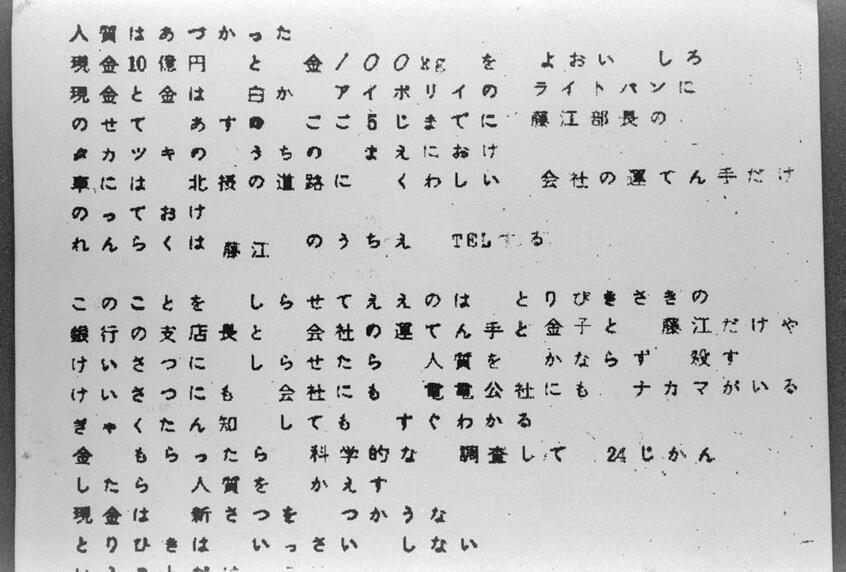 人質はあづかった
現金10億円 と 金100kg を よおい しろ
現金と金は 白か アイボリイの ライトバンに
のせて あすの ごご5じまでに 藤江部長の
タカツキの うちの まえにおけ
車には 北摂の道路に くわしい 会社の運てん手だけ
のっておけ
れんらくは 藤江 のうちえ TELする
このことを しらせてええのは とりひきさきの
銀行の支店長と 会社の運てん手と金子と 藤江だけや
けいさつに しらせたら 人質を かならず 殺す
けいさつにも 会社にも 電電公社にも ナカマがいる
ぎゃくたん知 しても すぐわかる
金 もらったら 科学的な 調査して 24じかん
したら 人質を かえす
現金は 新さつを つかうな
とりひきは いっさい しない